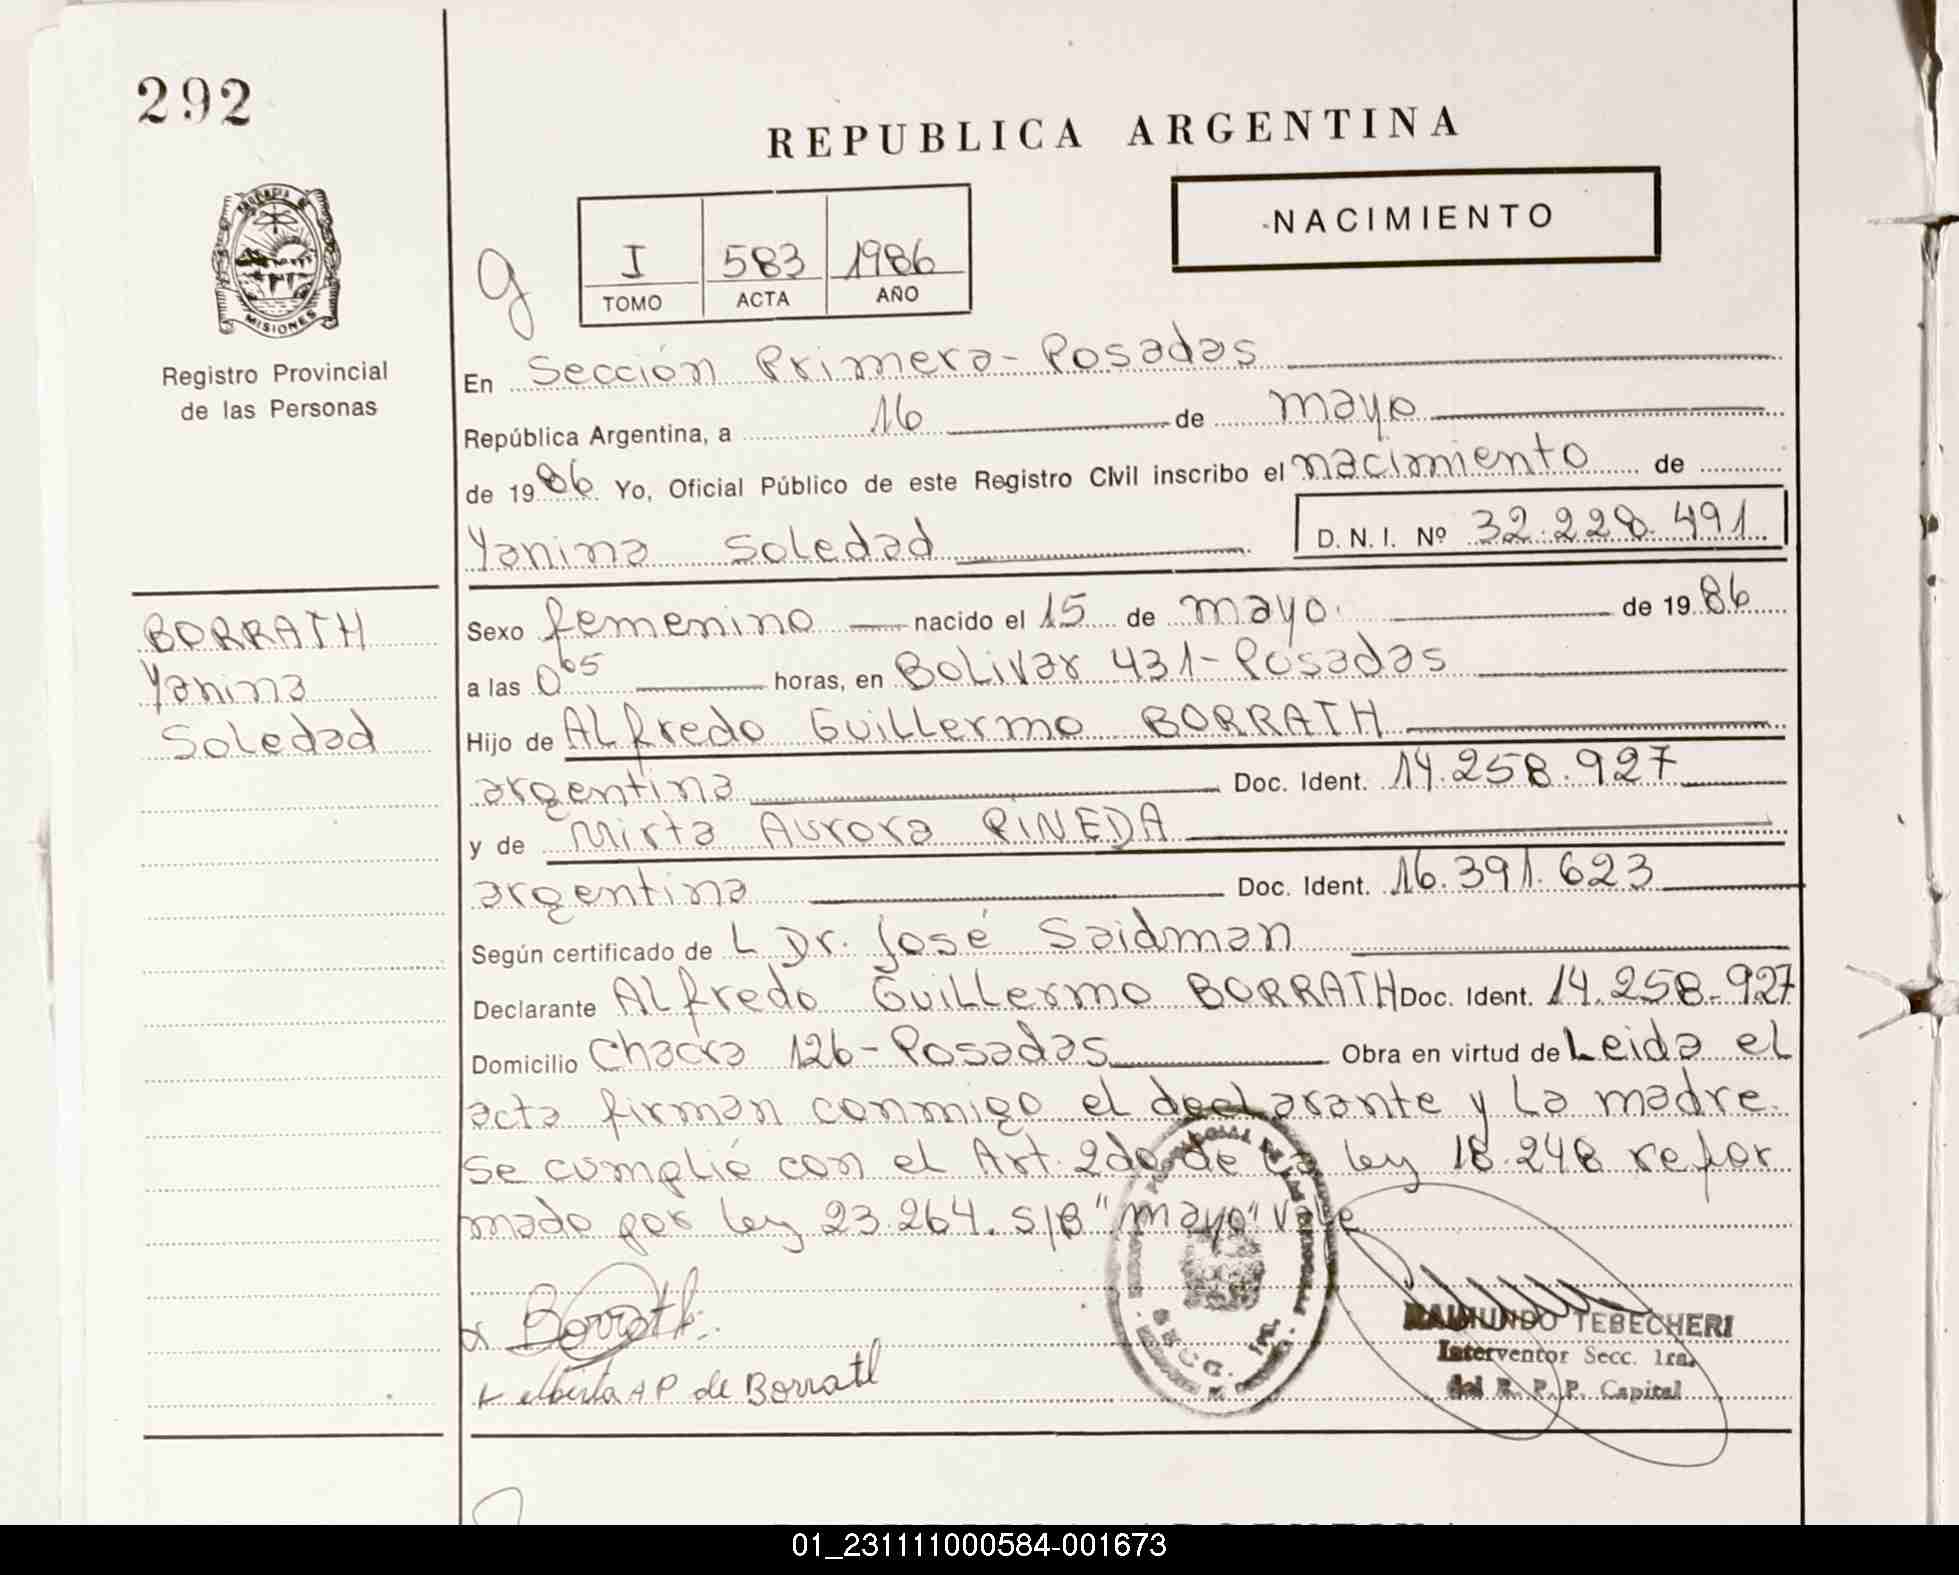 292
REPUBLICA ARGENTINA
NACIMIENTO
g
I 583 1986
TOMO ACTA AÑO
MISIONES
Registro Provincial
de las Personas
En Sección Primera - Posadas
República Argentina, a 16 de mayo
de 1986 Yo, Oficial Público de este Registro Civil inscribo el nacimiento de
Yanina Soledad D. N. I. Nº 32.228.491
BORRATH
Yanina
Soledad
Sexo femenino nacido el 15 de mayo. de 1986
a las 0⁶⁵ horas, en Bolivar 431 - Posadas
Hijo de Alfredo Guillermo BORRATH
argentina Doc. Ident. 14.258.927
y de Mirta Aurora PINEDA
argentina Doc. Ident. 16.391.623
Según certificado de L Dr. José Saidman
Declarante Alfredo Guillermo BORRATH Doc. Ident. 14.258.927
Domicilio Chacra 126 - Posadas Obra en virtud de Leida el
acta firman conmigo el declarante y la madre.
Se cumplió con el Art. 2do de la ley 18.248 refor
mado por ley 23.264. S/B "mayo" vale
x Borrath
x A P de Borrath
RAIMUNDO TEBECHERI
Interventor Secc. 1ra.
del R. P. P. Capital
01_231111000584-001673